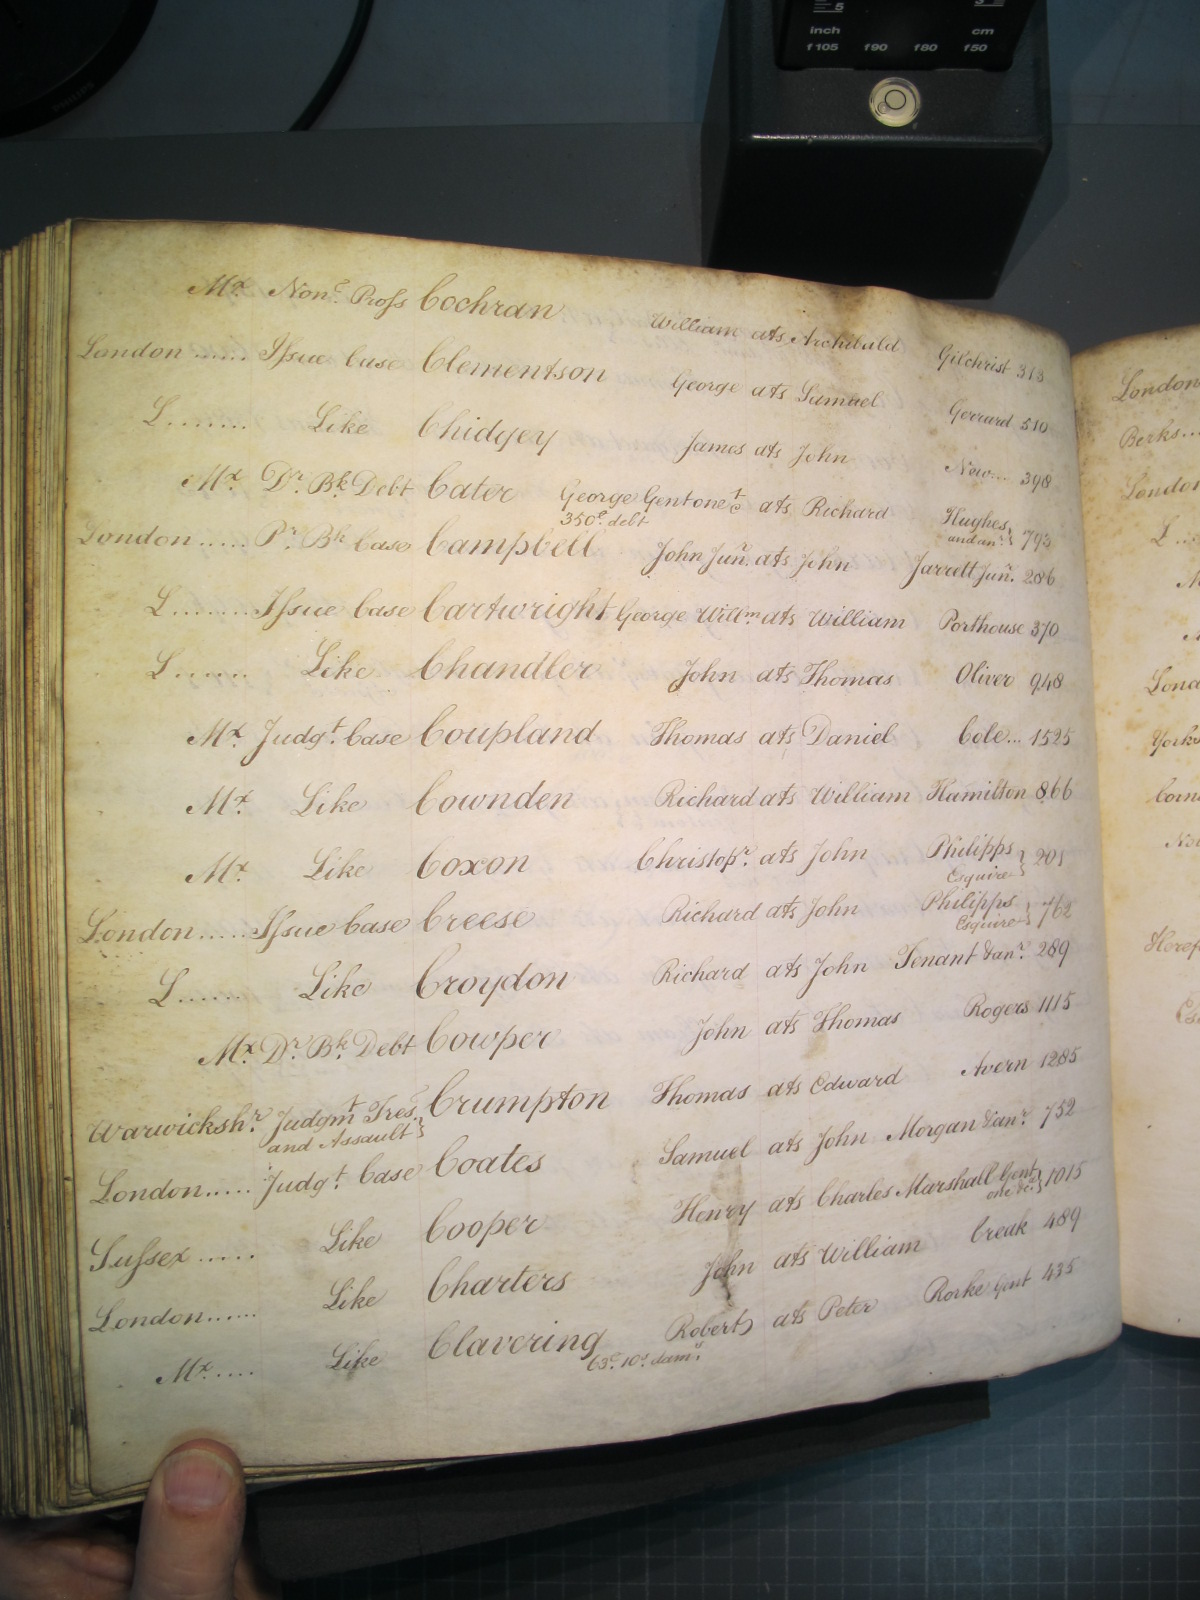 5
inch cm
f105 f90 f80 f50
PHILIPS
Mx. Non. Pross Cochran William ats Archibald Gilchrist 313
London ...... Issue Case Clementson George ats Samuel Gerrard 510
L........ Like Chidgey James ats John New... 398
Mx. Dr. Bk. Debt Cater George Gent one &c ats Richard Hughes and anr. 793
350£ debt
London ..... Pr. Bk Case Campbell John Junr. ats John Jarrett Junr. 286
L........ Issue Case Cartwright George Willm ats William Porthouse 370
L....... Like Chandler John ats Thomas Oliver 948
Mx. Judgt. Case Coupland Thomas ats Daniel Cole... 1525
Mx. Like Cownden Richard ats William Hamilton 866
Mx. Like Coxon Christopr. ats John Philipps Esquire 201
London..... Issue Case Creese Richard ats John Philipps Esquire 762
L....... Like Croydon Richard ats John Tenant & anr. 289
Mx. Dr. Bk. Debt Cowper John ats Thomas Rogers 1115
Warwickshr. Judgmt Tres. and Assault Crumpton Thomas ats Edward Avern 1285
London..... Judgt. Case Coates Samuel ats John Morgan & anr. 752
Sussex ..... Like Cooper Henry ats Charles Marshall Gent. one &c. 1015
London...... Like Charters John ats William Creak 489
Mx..... Like Clavering Robert ats Peter Rorke Gent 435
63£. 10s. dams.
London
Berks...
London
L...
Yorks
Corn
Heref